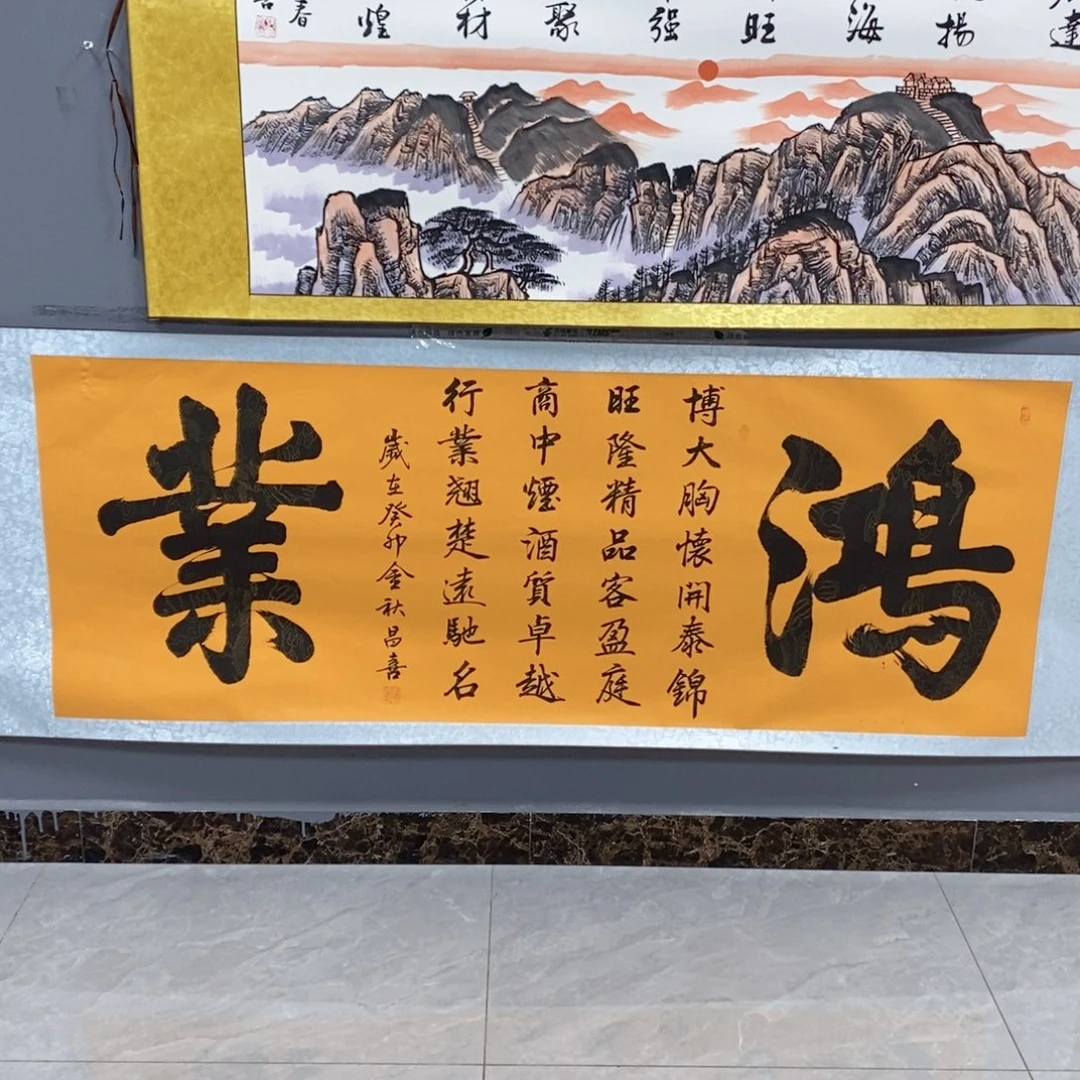 達
揚
海
旺
强
聚
材
煌
春
鴻
博大胸懷開泰錦
旺隆精品客盈庭
商中煙酒質卓越
行業翹楚遠馳名
歲在癸卯金秋昌喜
業